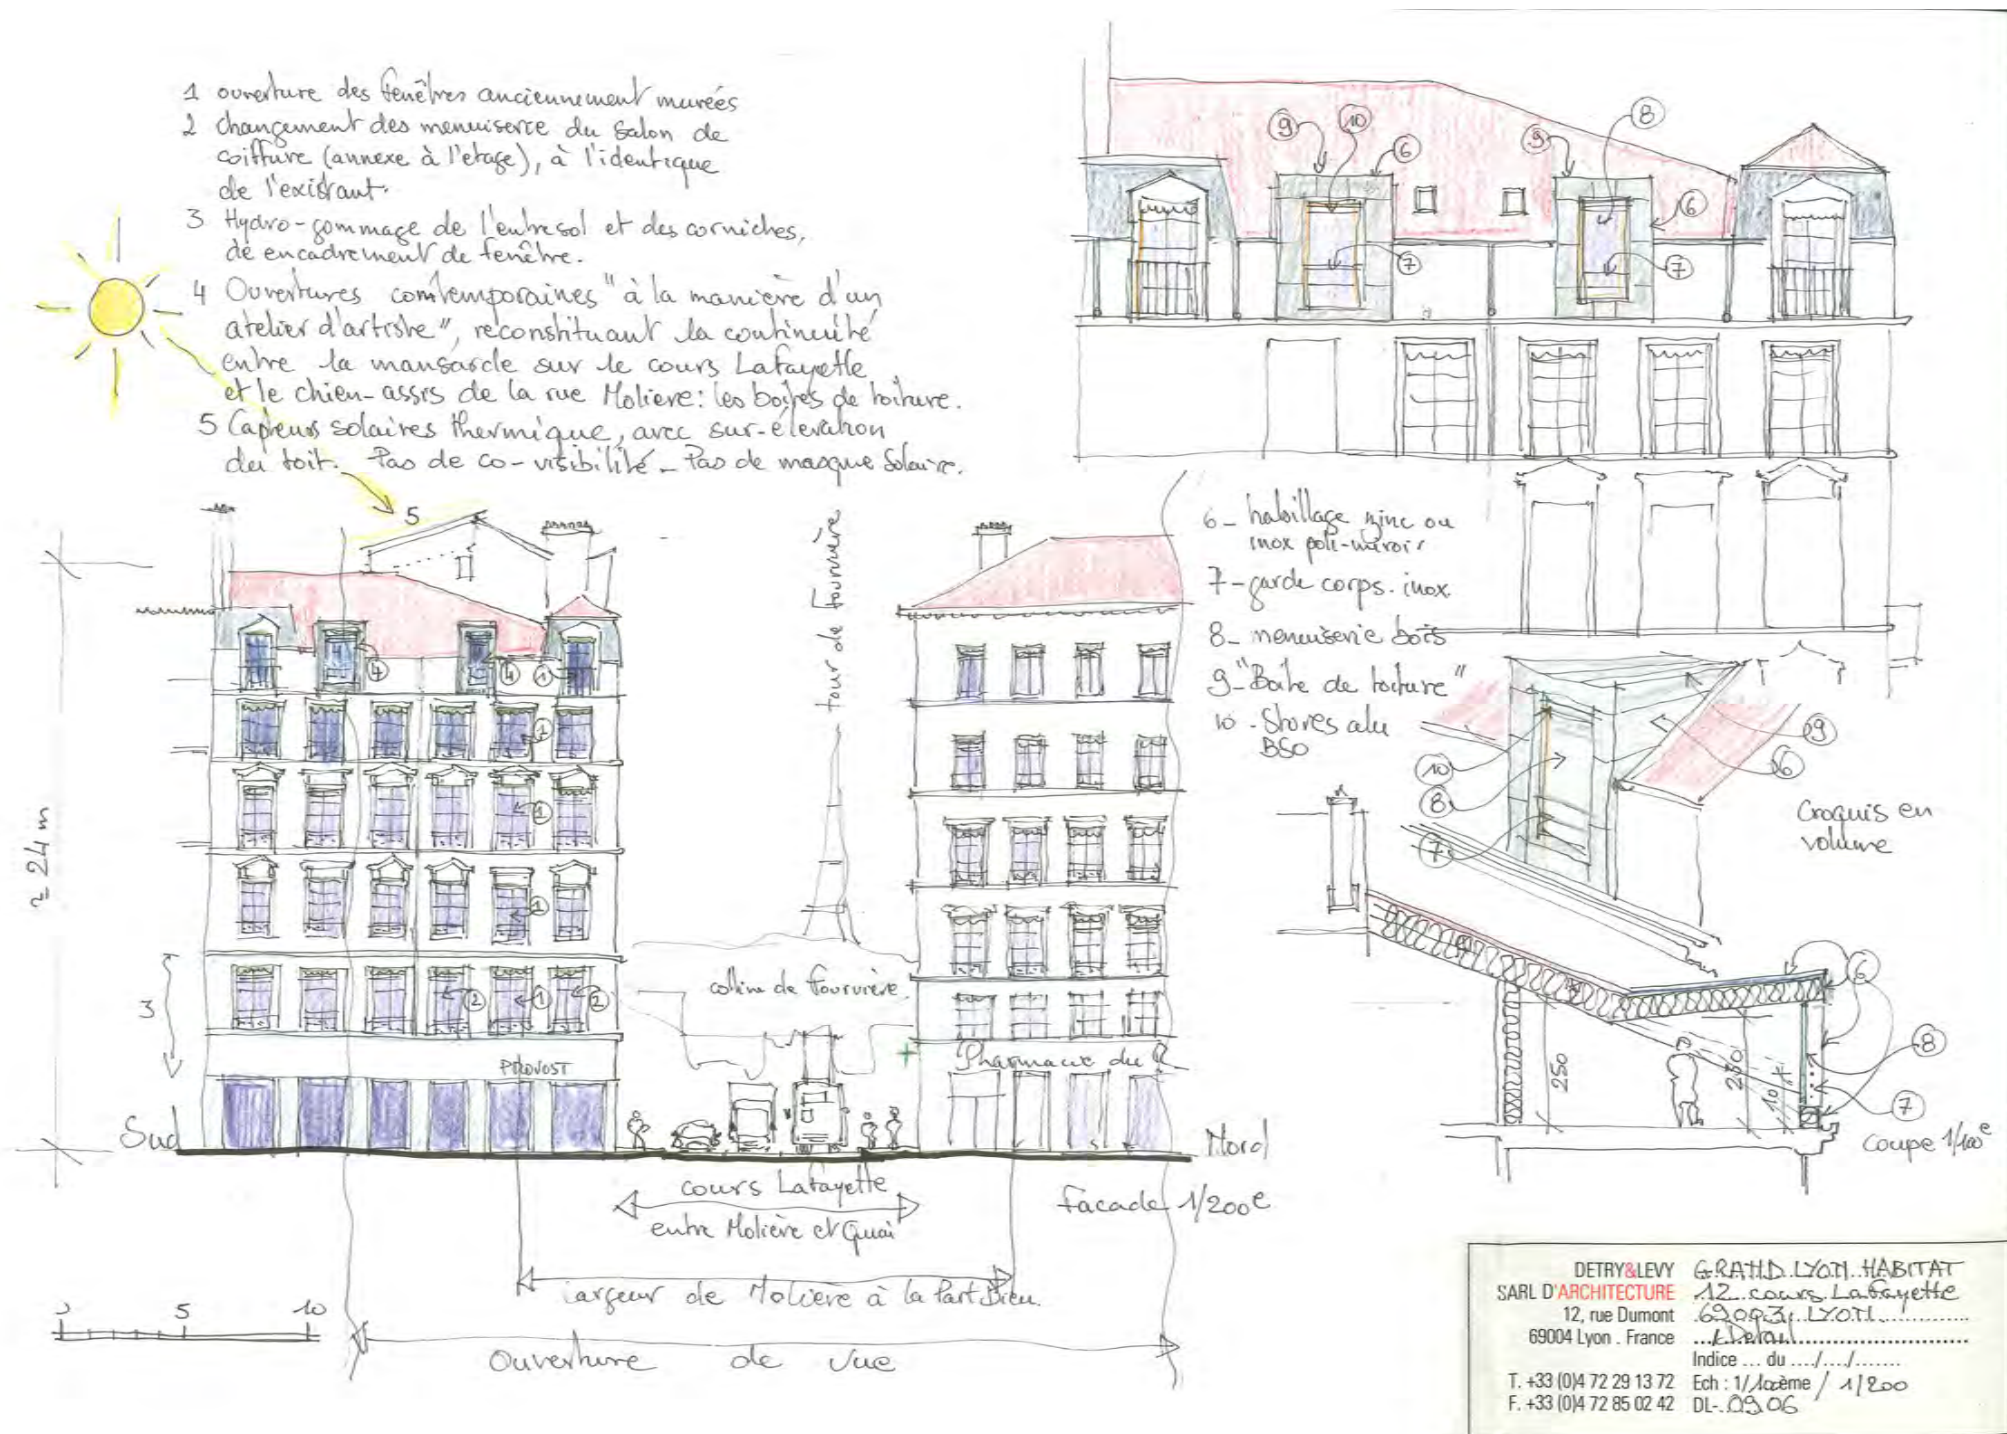 1 ouverture des fenêtres anciennement murées
2 changement des menuiserie du salon de
coiffure (annexe à l'etage), à l'identique
de l'existant.
3 Hydro-gommage de l'entresol et des corniches,
de encadrement de fenêtre.
4 Ouvertures contemporaines "à la manière d'un
atelier d'artiste", reconstituant la continuité
entre la mansarde sur le cours Lafayette
et le chien-assis de la rue Molière: les boîtes de toiture.
5 Capteurs solaires thermique, avec sur-élevation
du toit. Pas de co-visibilité - Pas de masque Solaire.
9
10
6
9
8
6
7
7
6- habillage zinc ou
inox poli-miroir
7- garde corps. inox.
8- menuiserie bois
9- "Boîte de toiture"
10 - Stores alu
BSO
5
4
4
4
1
1
1
1
2
1
2
3
≃ 24 m
tour de Fourvière
colline de Fourvière
PROVOST
Pharmacie du
Sud
Nord
cours Lafayette
entre Molière et Quai
Facade 1/200e
largeur de Molière à la Part Dieu.
Ouverture de vue
5
10
9
6
10
8
7
Croquis en
volume
6
8
7
250
230
10
coupe 1/100e
DETRY&LEVY
SARL D'ARCHITECTURE
12, rue Dumont
69004 Lyon . France
T. +33 (0)4 72 29 13 72
F. +33 (0)4 72 85 02 42
GRAND LYON HABITAT
12 cours Lafayette
69003 LYON
Indice ... du ..../..../.......
Ech : 1/100ème / 1/200
DL-. 09 06